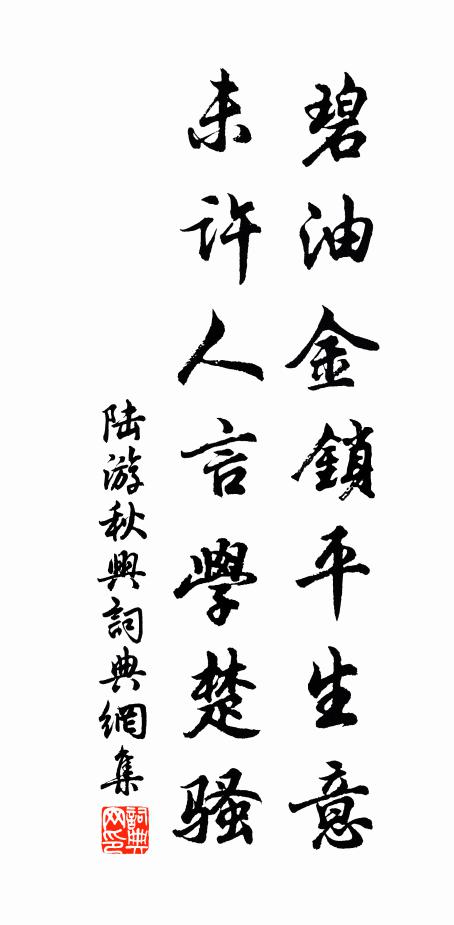 碧油金鎖平生意
未許人言學楚騷
陸游秋興詞典網集
詞典
网印